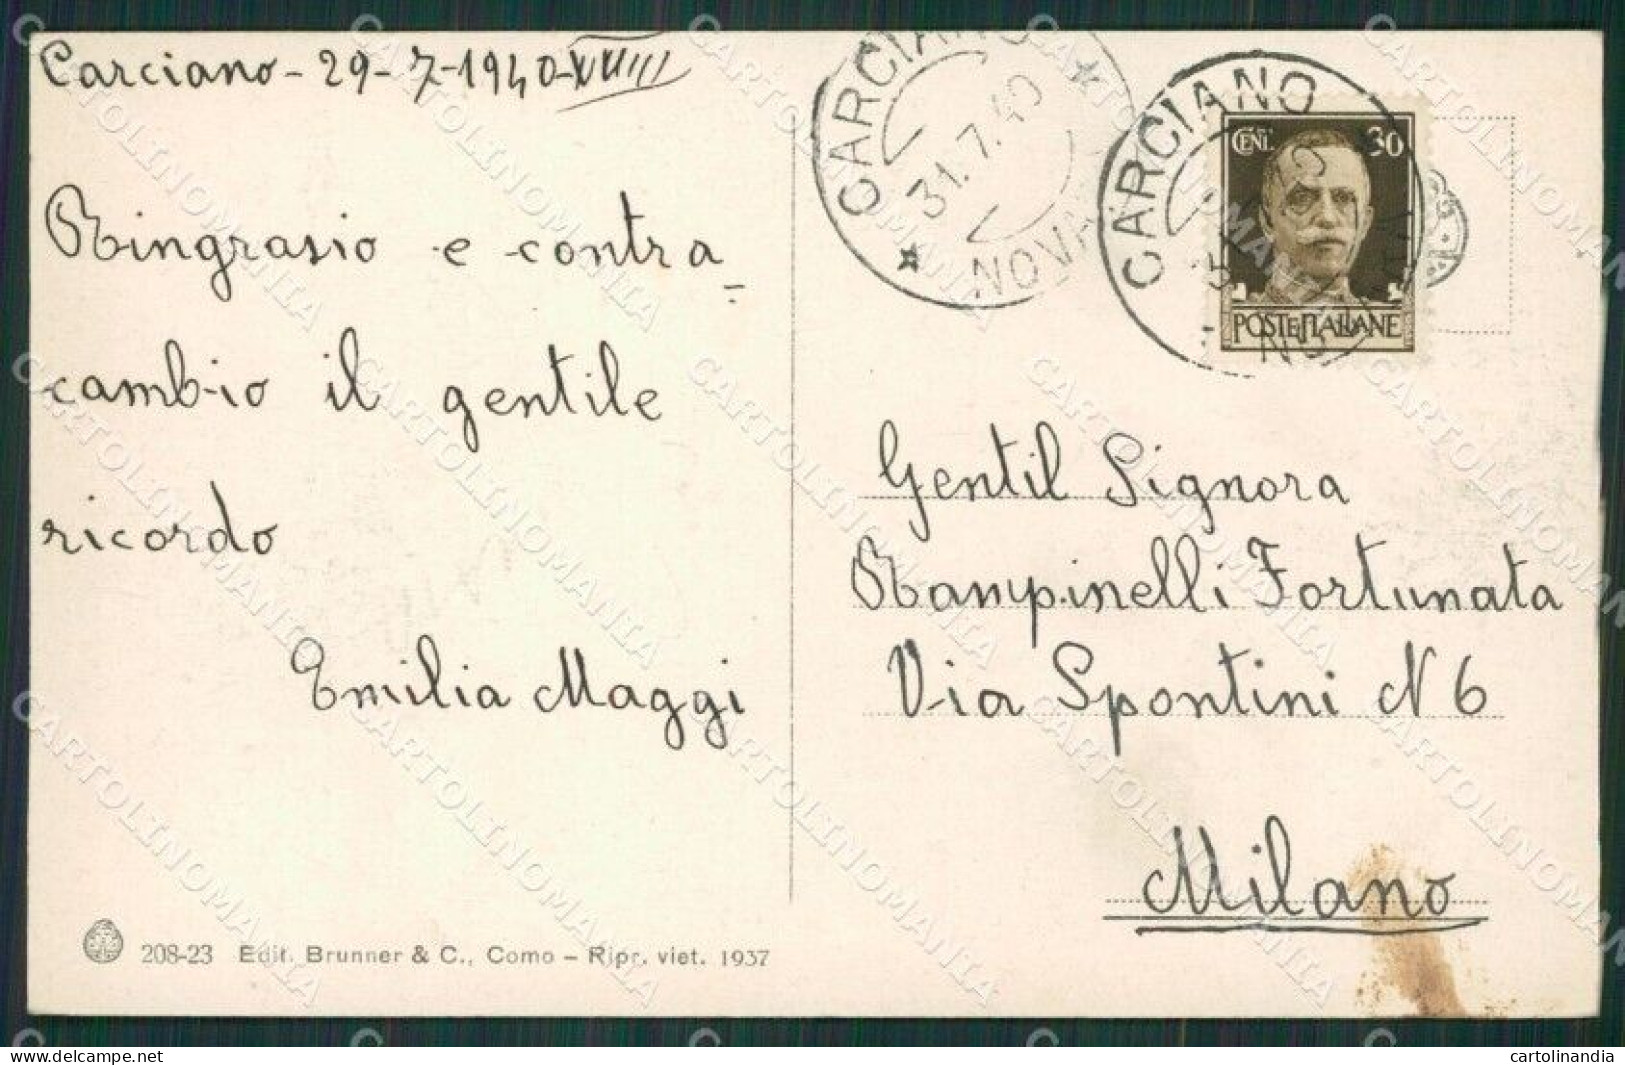 Carciano - 29 - 7 - 1940 - XVIIII
Ringrasio e contra-
cambio il gentile
ricordo
Emilia Maggi
208-23 Edit. Brunner & C., Como - Ripr. viet. 1937
CARCIANO
31.7.40
NOVARA
CARCIANO
CENT. 30
POSTE ITALIANE
Gentil Signora
Rampinelli Fortunata
Via Spontini N 6
Milano
CARTOLINOMANIA
delcampe.net
cartolinandia